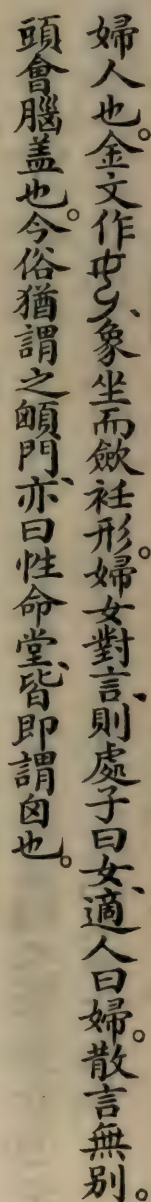 婦人也。金文作、象坐而斂衽形。婦女對言、則處子曰女、適人曰婦。散言無別。
頭會腦蓋也。今俗猶謂之顖門、亦曰性命堂、皆即謂囟也。